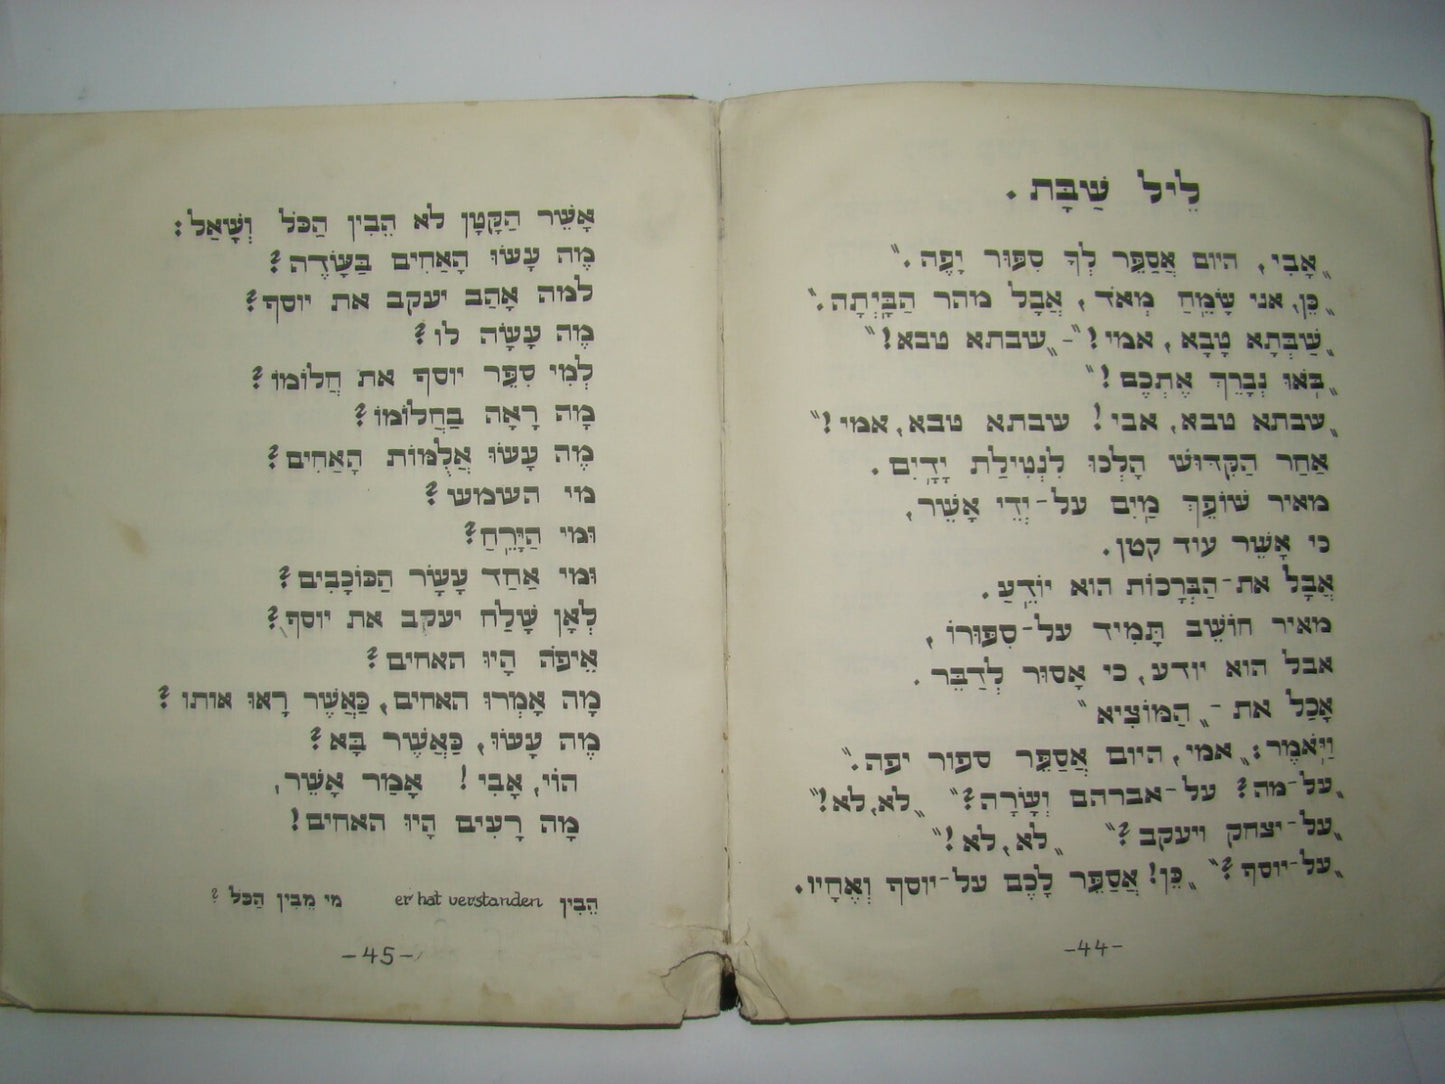 לֵיל שַׁבָּת.
„אָבִי, היום אֲסַפֵּר לְךָ סִפּוּר יָפֶה.“
„כֵּן, אני שָׂמֵחַ מְאֹד, אֲבָל מהר הַבָּיְתָה.“
„שַׁבְּתָא טָבָא, אמי!“ - „שבתא טבא!“
„בֹּאוּ נְבָרֵךְ אֶתְכֶם!“
„שבתא טבא, אבי! שבתא טבא, אמי!“
אַחַר הַקִּדּוּשׁ הָלְכוּ לִנְטִילַת יָדַיִם.
מאיר שׁוֹפֵךְ מַיִם על-יְדֵי אָשֵׁר,
כי אָשֵׁר עוד קטן.
אֲבָל את-הַבְּרָכוֹת הוא יוֹדֵעַ.
מאיר חוֹשֵׁב תָּמִיד על-סִפּוּרוֹ,
אבל הוא יודע, כי אָסוּר לְדַבֵּר.
אָכַל את - „הַמּוֹצִיא“
וַיֹּאמֶר: „אמי, היום אֲסַפֵּר ספור יפה.“
„על-מה? על-אברהם וְשָׂרָה?“ „לא, לא!“
„על-יצחק ויעקב?“ „לא, לא!“
„על-יוסף?“ „כֵּן! אֲסַפֵּר לָכֶם על-יוסף וְאֶחָיו.
-44-
אָשֵׁר הַקָּטָן לֹא הֵבִין הַכֹּל וְשָׁאַל:
מֶה עָשׂוּ הָאַחִים בַּשָּׂדֶה?
למה אָהַב יעקב את יוסף?
מֶה עָשָׂה לו?
לְמִי סִפֵּר יוסף את חֲלוֹמוֹ?
מָה רָאָה בַּחֲלוֹמוֹ?
מֶה עָשׂוּ אֲלֻמּוֹת הָאַחִים?
מי השמש?
וּמי הַיָּרֵחַ?
וּמי אַחַד עָשָׂר הַכּוֹכָבִים?
לְאָן שָׁלַח יעקב את יוסף?
אֵיפֹה הָיוּ האחים?
מָה אָמְרוּ האחים, כַּאֲשֶׁר רָאוּ אותו?
מֶה עָשׂוּ, כַּאֲשֶׁר בָּא?
הוֹי, אָבִי! אָמַר אָשֵׁר,
מָה רָעִים הָיוּ האחים!
הֵבִין er hat verstanden מי מֵבִין הַכֹּל?
-45-